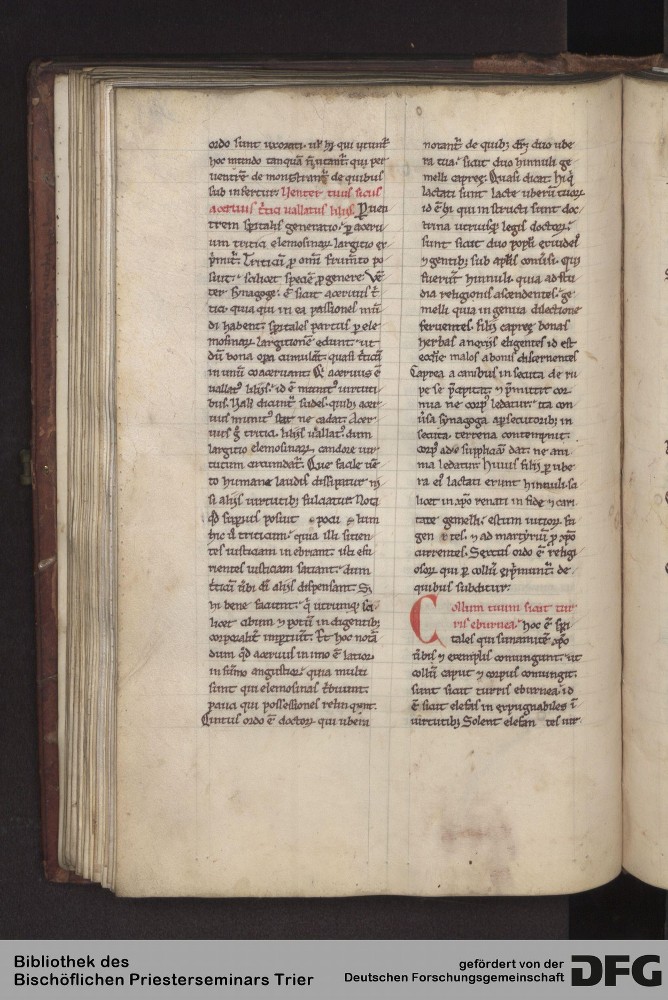 ordo sunt uxorati. ut hi qui utunt
hoc mundo tanquā n̄ utant. qui per
uentrē demonstrant. de quibus
sub infertur. Uenter tuus sicut
aceruus t̄tici uallatus liliis. Per uen
trem spiritalis generatio. per aceru
um tritici elemosinarum largitio ex
p̄mit. Triticū pro omni frumento po
suit. scilicet speciē pro genere. Ven
ter synagoge ē sicut aceruus t̄
tici. quia qui in ea passiones mun
di habent. spiritales partus per ele
mosinarum largitionē edunt. ut
dū bona opera cumulant. quasi t̄ticū
in unū coaceruant. Qui aceruus ē
uallatꝰ liliis. id ē munitꝰ uirtuti
bus.
uus munitꝰ ne cadat. Acer
uus g̊ tritici liliis uallatꝰ. dum
largitio elemosinarum candore uir
tutum circumdatur. Que facile uen
to humane laudis dissipatur ni
si aliis uirtutibꝫ fulciatur. Nota
qd superius posuit poculum
hic u̅ triticum. quia illi sitien
tes iusticiam inebriant. isti esu
rientes iusticiam satiant. dum
t̄ticū uerbi dei aliis dispensant.
hi bene faciunt. qui utrumque sci
licet cibum et potū indigentibꝫ
corporaliter impertiunt. Et hoc notan
dum qd aceruus in imo ē latior
in summo angustior. quia multi
sunt qui elemosinas tribuunt.
pauci qui possessiones relinquunt.
Quintus ordo ē doctorum qui ubera
norant. de quibꝫ dr̄. duo ube
ra tua. sicut duo hinnuli ge
melli capreę. Quasi dicat. hi qui
lactati sunt lacte uberū tuorum
id ē hi qui instructi sunt doc
trina utriusque legis doctorum.
sunt sicut duo populi
et gentibꝫ sub apostolis conuersi. qui
fuerunt hinnuli. quia ad stu
dia religionis ascendentes. ge
melli quia in gemina dilectione
feruentes. filii capreę bonas
herbas a noxiis eligentes id est
ecclesie malos a bonis discernentes
Caprea a canibus insecuta de ru
pe se precipitat. et premittit cor
nua ne corpus ledatur. ita con
uersa synagoga a persecutoribꝫ in
secuta. terrena contempnit.
corpus ad suppliciam dat. ne ani
ma ledatur. Huius filii per ube
ra ei lactati erunt hinnuli. sci
licet in christo renati in fide et cari
tate gemelli.
tes. et ad martyriū pro christo
currentes. Sextus ordo ē religi
osorum qui per collū exprimuntur. de
quibus subditur.
Collum tuum sicut tur
ris eburnea. hoc ē spiri
tales qui sunamitē christo
uerbis et exemplis coniungunt. ut
collū caput et corpus coniungit.
sunt sicut turris eburnea. id
ē sicut elefas inexpugnabiles in
uirtutibꝫ. Solent elefantes tur
Bibliothek des
Bischöflichen Priesterseminars Trier
gefördert von der
Deutschen Forschungsgemeinschaft
DFG